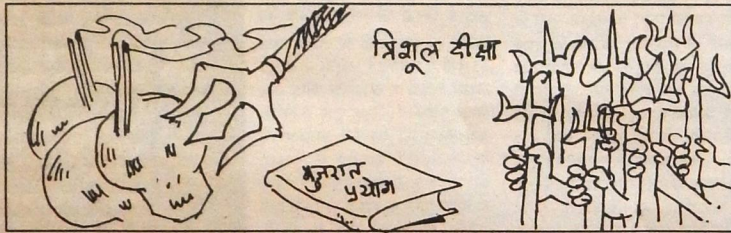 त्रिशूल दीक्षा
गुजरात
प्रयोग